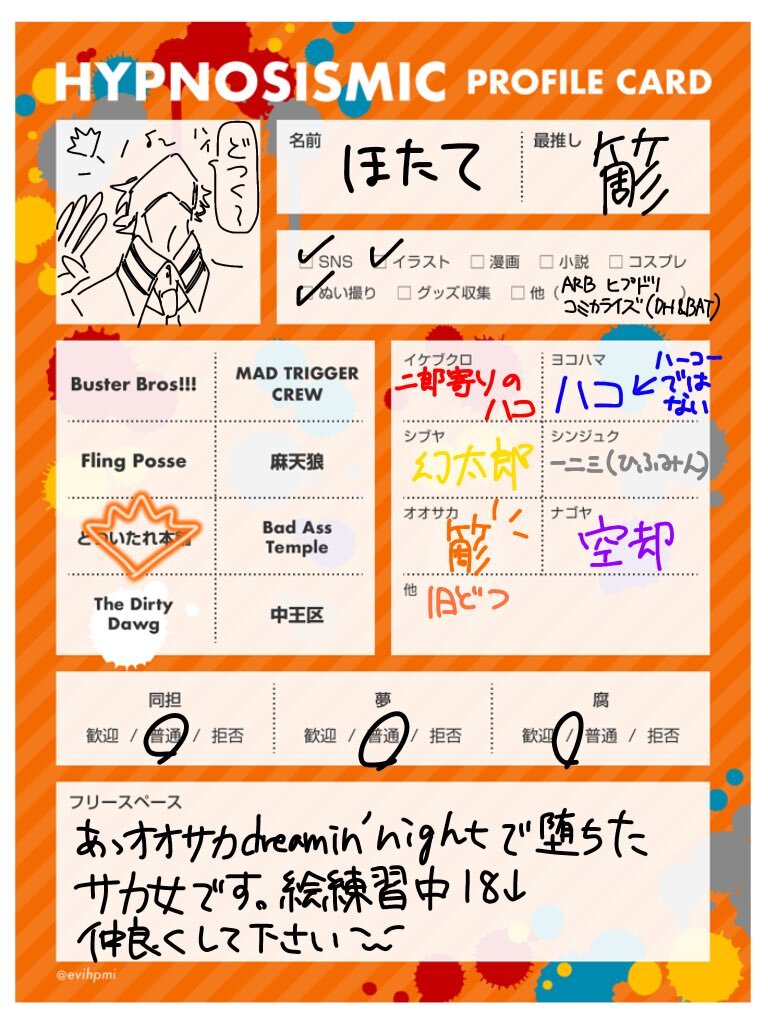 HYPNOSISMIC PROFILE CARD
どつく〜
ハイ
名前
ほたて
最推し
簓
SNS イラスト 漫画 小説 コスプレ
ぬい撮り グッズ収集 他( )
ARB ヒプドリ
コミカライズ(DH&BAT)
Buster Bros!!!
MAD TRIGGER
CREW
Fling Posse
麻天狼
どついたれ本舗
Bad Ass
Temple
The Dirty
Dawg
中王区
イケブクロ
二郎寄りの
ハコ
ヨコハマ
ハコ
ハーコー
ではない
シブヤ
幻太郎
シンジュク
一二三(ひふみん)
オオサカ
簓
ナゴヤ
空却
他
旧どつ
同担
歓迎 / 普通 / 拒否
夢
歓迎 / 普通 / 拒否
腐
歓迎 / 普通 / 拒否
フリースペース
あゝオオサカdreamin'nightで堕ちた
サカ女です。絵練習中 18↓
仲良くして下さい〜
@evihpmi